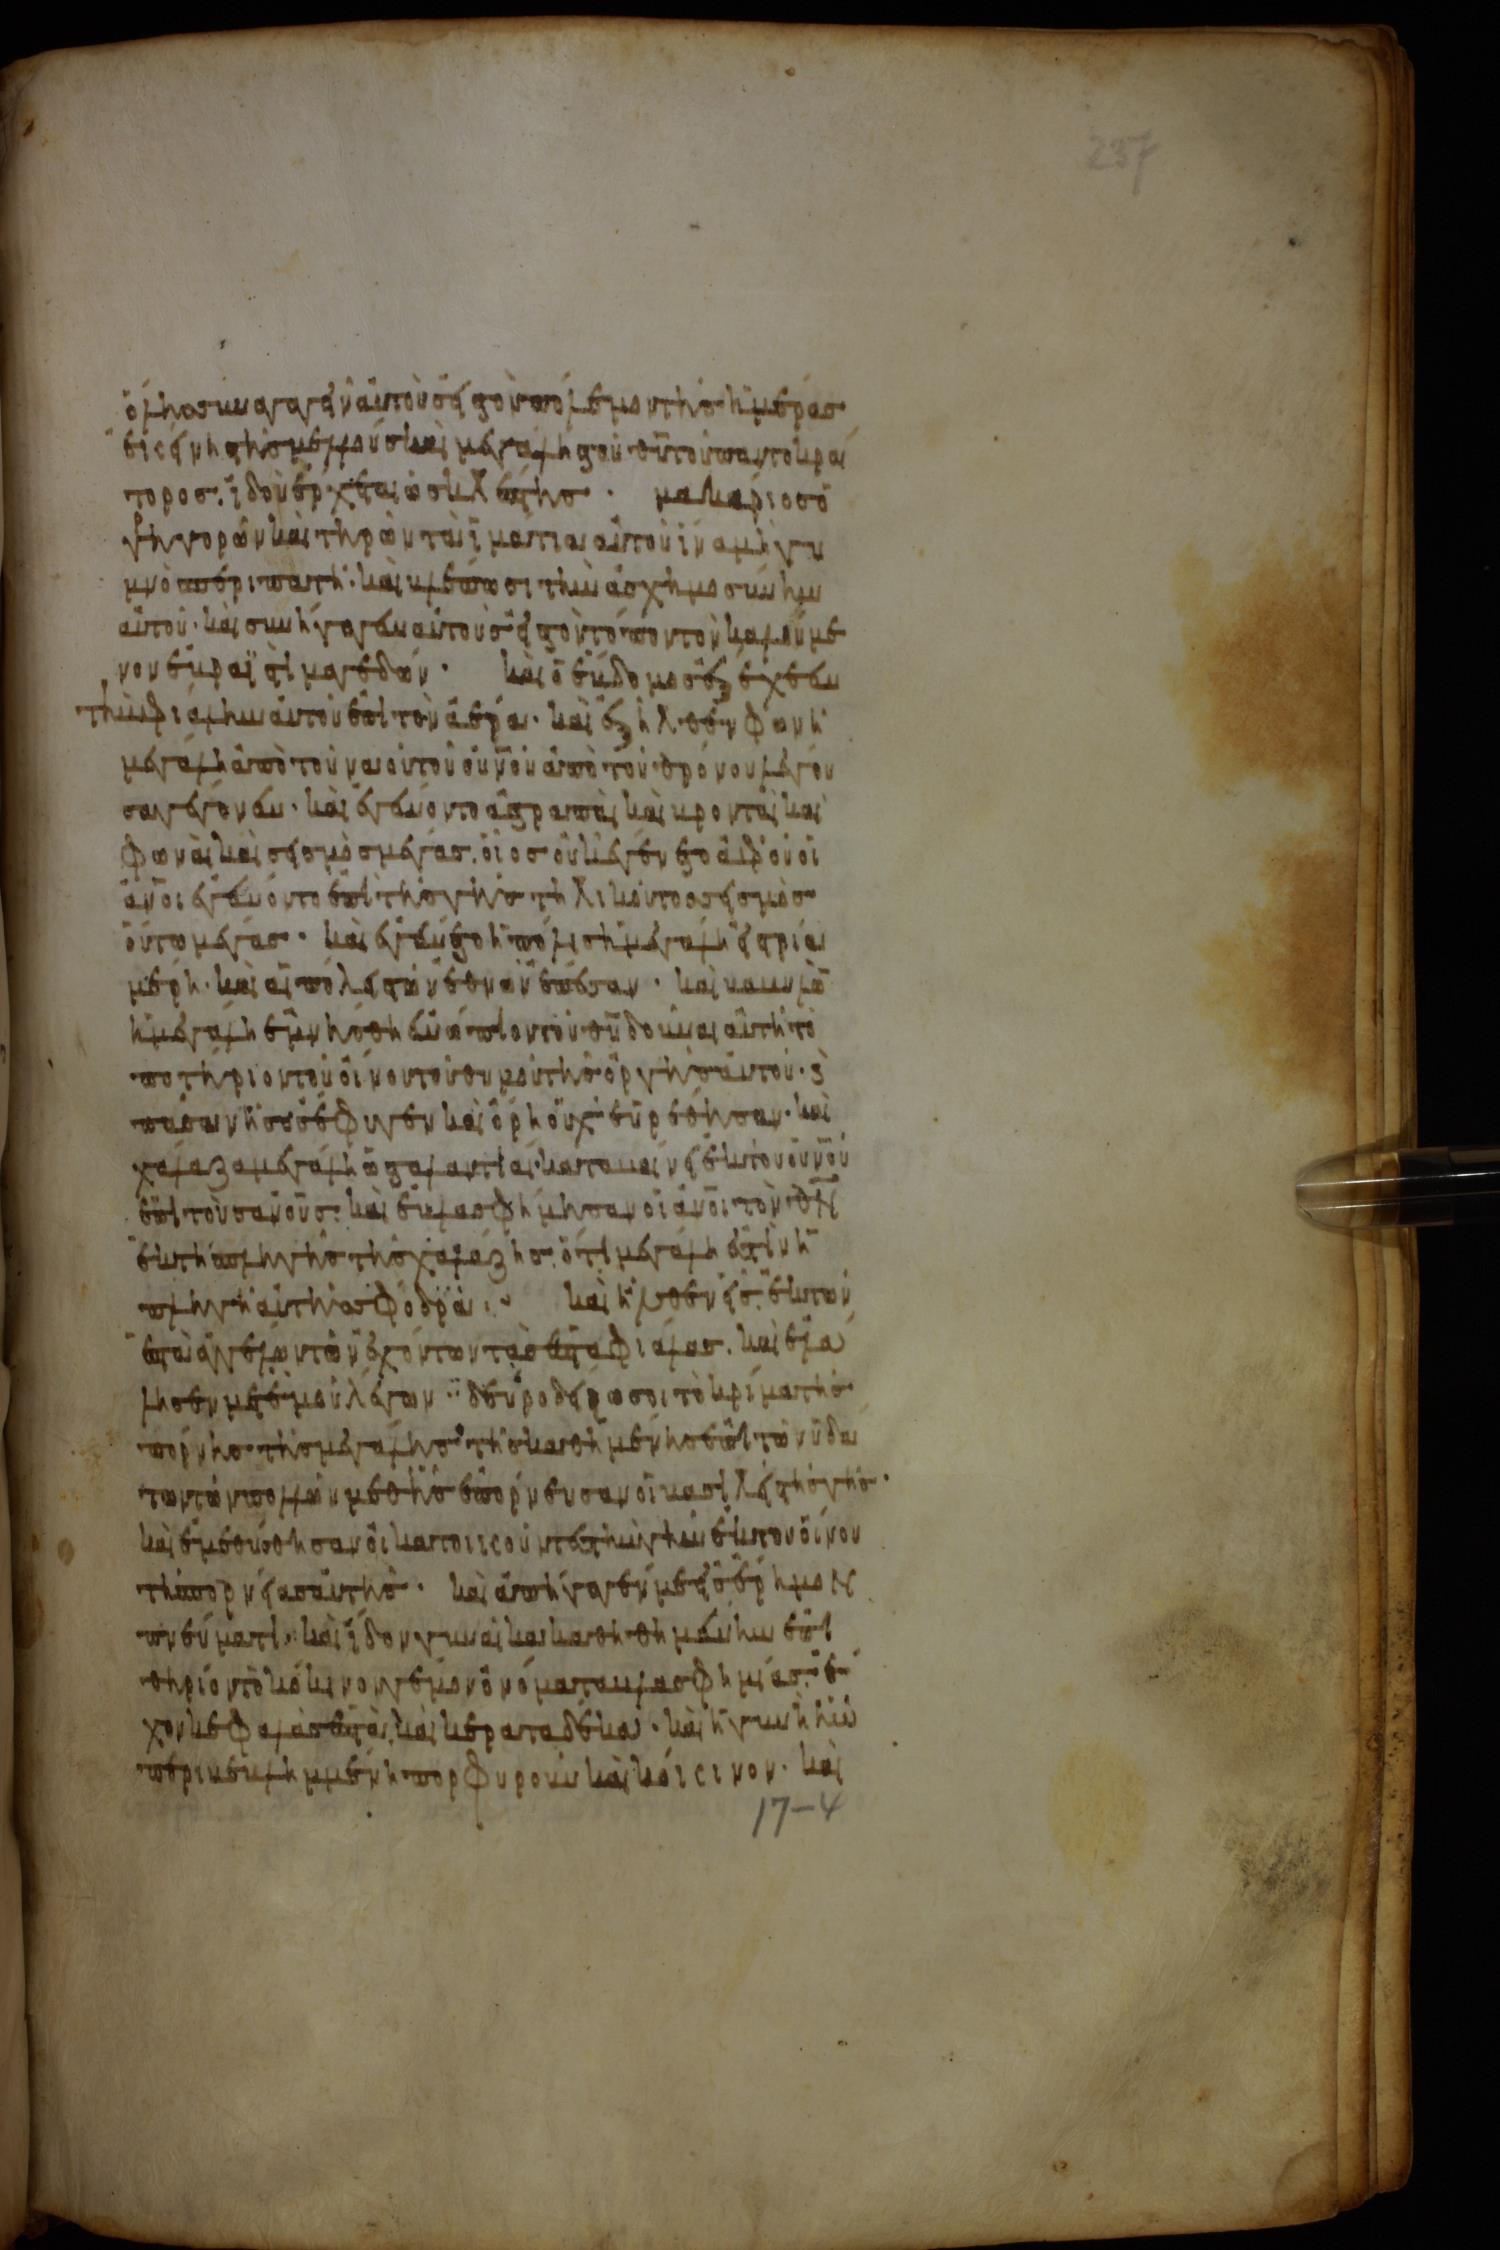 237
ὅλης συναγαγεῖν αὐτοὺς εἰς τὸν πόλεμον τῆς ἡμέρας
ἐκείνης τῆς μελλούσης καὶ μεγάλης τοῦ θῦ τοῦ παντοκρά
τορος. ἰδοὺ ἔρχεται ὡς κλέπτης · μακάριος ὁ
γρηγορῶν καὶ τηρῶν τὰ ἱμάτια αὐτοῦ ἵνα μὴ γυ
μνὸς περιπατῆ · καὶ βλέπωσι τὴν ἀσχημοσύνην
αὐτοῦ · καὶ συνήγαγεν αὐτοὺς εἰς τὸν τόπον τὸν καλούμε
νον ἑβραϊστὶ μαγεδών · καὶ ὁ ἕβδομος ἐξέχεεν
τὴν φιάλην αὐτοῦ ἐπὶ τὸν ἀέρα · καὶ ἐξῆλθεν φωνὴ
μεγάλη ἀπὸ τοῦ ναοῦ τοῦ οὐνοῦ ἀπὸ τοῦ θρόνου λέγου
σα γέγονεν · καὶ ἐγένοντο ἀστραπαὶ καὶ βρονταὶ καὶ
φωναὶ καὶ σεισμὸς μέγας. οἷος οὐκ ἐγένετο ἀφ' οὗ οἱ
ἄνοι ἐγένοντο ἐπὶ τῆς γῆς τηλικοῦτος σεισμὸς
οὕτω μέγας · καὶ ἐγένετο ἡ πόλις ἡ μεγάλη εἰς τρία
μέρη · καὶ αἱ πόλεις τῶν ἐθνῶν ἔπεσαν · καὶ βαβυλὼ
ἡ μεγάλη ἐμνήσθη ἐνώπιον τοῦ θῦ δοῦναι αὐτῆ τὸ
ποτήριον τοῦ οἴνου τοῦ θυμοῦ τῆς ὀργῆς αὐτοῦ · ϗ
πᾶσα νῆσος ἔφυγεν καὶ ὄρη οὐχ εὑρέθησαν · καὶ
χάλαζα μεγάλη ὡς ταλαντιαία καταβαίνει ἐκ τοῦ οὐνοῦ
ἐπὶ τοὺς ἀνοῦς · καὶ ἐβλασφήμησαν οἱ ἄνοι τὸν θν
ἐκ τῆς πληγῆς τῆς χαλάζης. ὅτι μεγάλη ἐστὶν ἡ
πληγὴ αὐτῆς σφόδρα · καὶ ἦλθεν εἷς ἐκ τῶν
ἑπτὰ ἀγγέλων τῶν ἐχόντων τὰς ἑπτὰ φιάλας. καὶ ἐλά
λησεν μετ' ἐμοῦ λέγων · δεῦρο δείξω σοι τὸ κρίμα τῆς
πόρνης τῆς μεγάλης τῆς καθημένης ἐπὶ τῶν ὑδά
των τῶν πολλῶν μεθ' ἧς ἐπόρνευσαν οἱ βασιλεῖς τῆς γῆς ·
καὶ ἐμεθύσθησαν οἱ κατοικοῦντες τὴν γῆν ἐκ τοῦ οἴνου
τῆς πορνείας αὐτῆς · καὶ ἀπήγαγέν με εἰς ἔρημον
πνεύματι · καὶ ἴδον γυναῖκα καθηθημένην ἐπὶ
θηρίον τὸ κόκινον γέμον ὀνόματα βλασφημίας. ἔ
χον κεφαλὰς ἑπτὰ καὶ κέρατα δέκα · καὶ ἡ γυνὴ ἦν
περιβεβλημμένη πορφυροῦν καὶ κόκκινον · καὶ
17-4